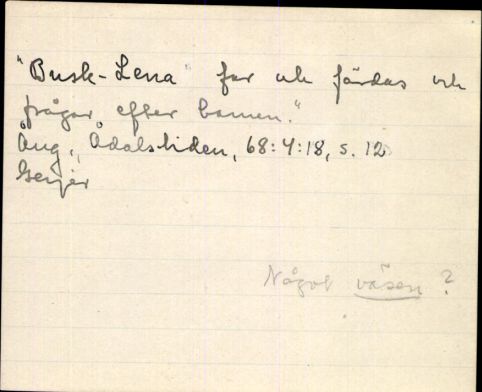 "Busk-Lena" far och färdas och
frågar efter barnen."
Ång., Ådalsliden, 68:4:18, s. 12
Geijer
Något väsen ?